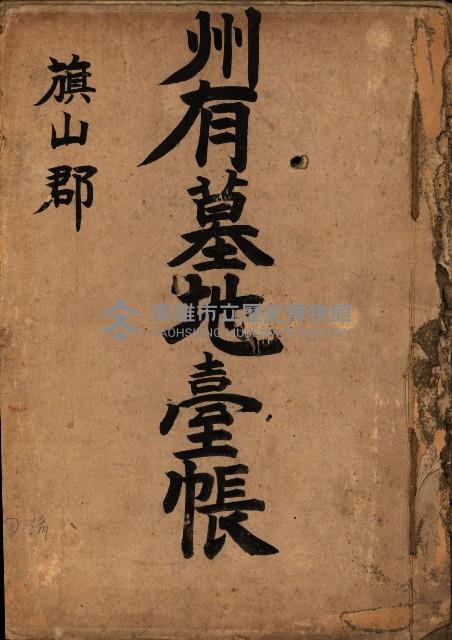 州有墓地臺帳
旗山郡
高雄市立歷史博物館
KAOHSIUNG MUSEUM OF HISTORY